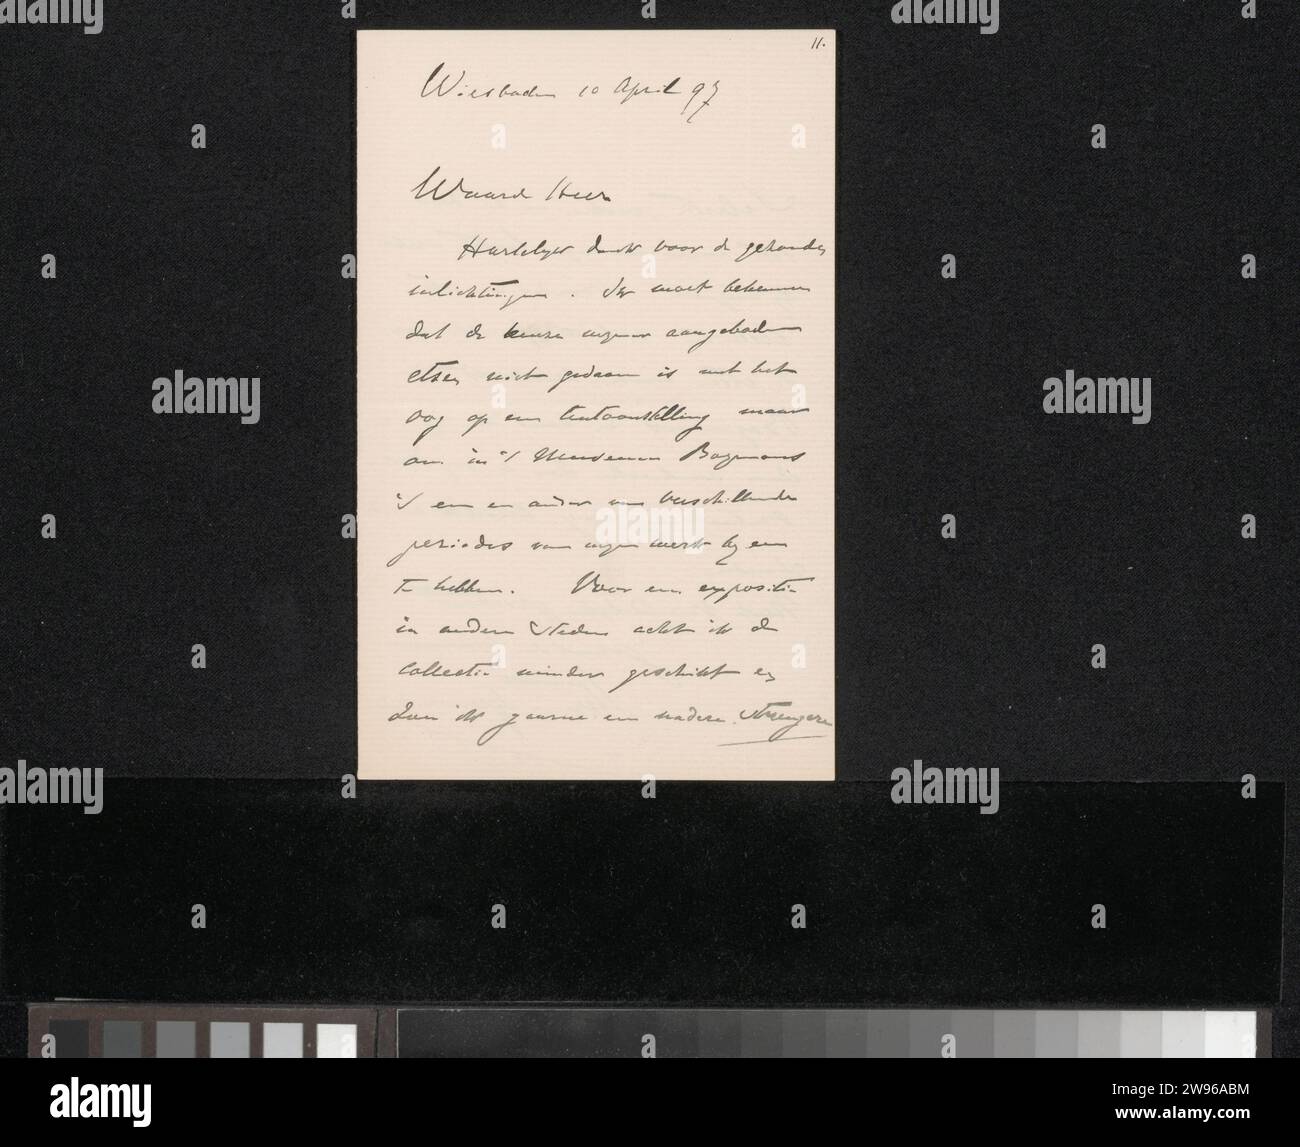 11.
Wiesbaden 10 April 97
Waard Heer
Hartelijk dank voor de gehouden
inlichtingen. Ik moet bekennen
dat de keuze mijner aangeboden
etsen niet gedaan is met het
oog op een tentoonstelling maar
om in 't Museum Boymans
't een en ander van verschillende
periodes van mijn werk bij een
te hebben. Voor een expositie
in andere steden acht ik de
collectie minder geschikt en
zou ik gaarne een nadere, strengere
alamy
Image ID: 2W96ABM
www.alamy.com